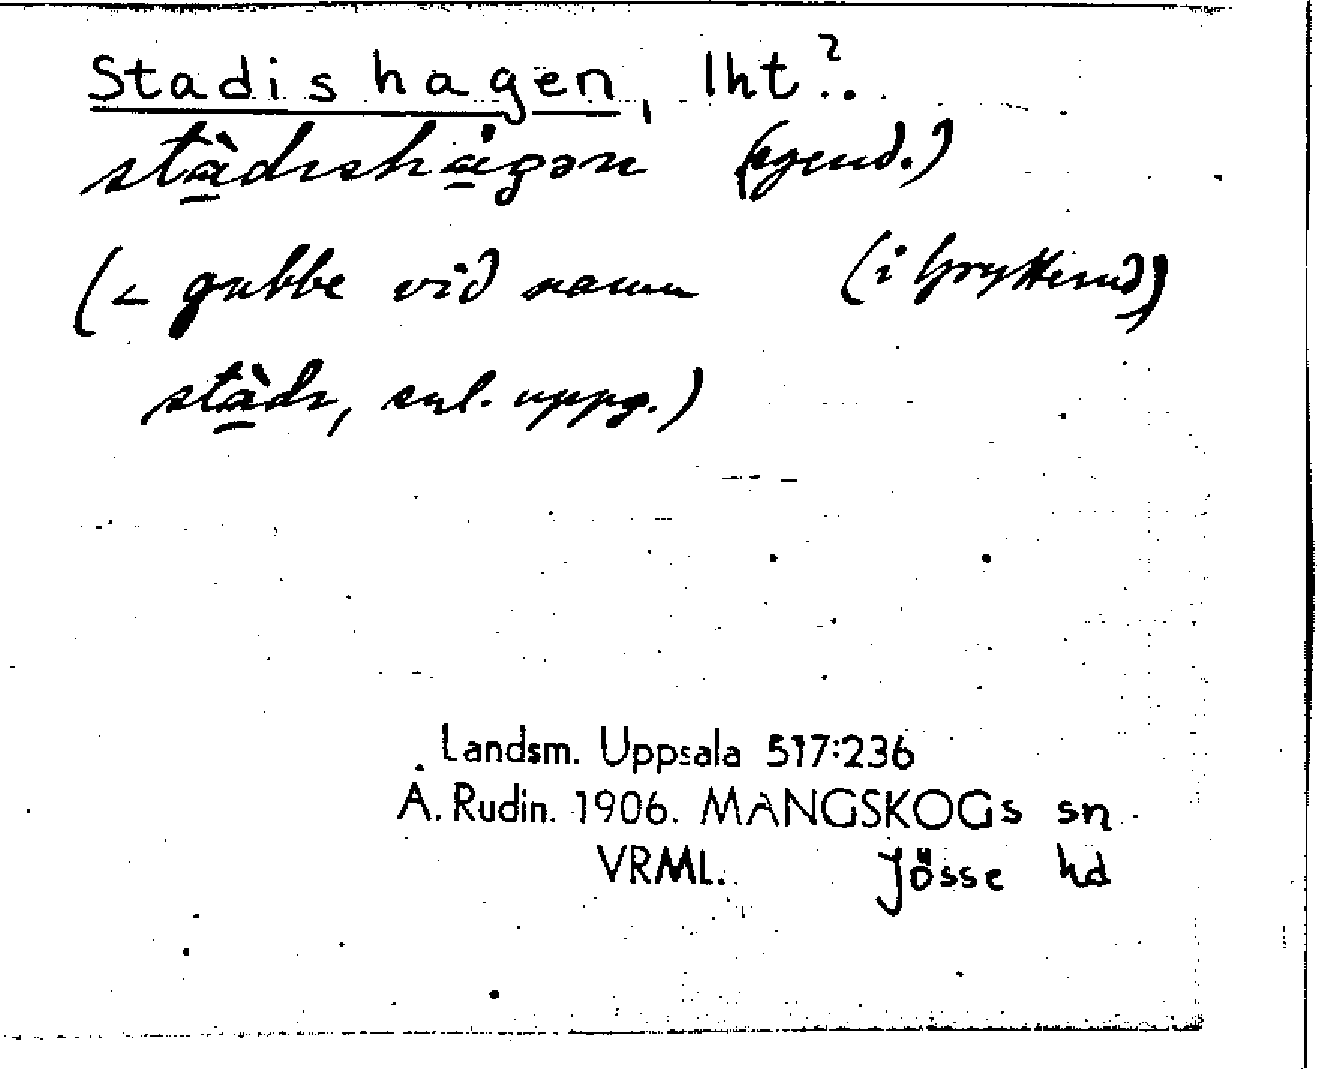 Stadishagen, lht?.
stàdıshágən (egend.)
(< gubbe vid namn (i Gryttemd)
stàdı, enl. uppg.)
Landsm. Uppsala 517:236
A. Rudin. 1906. MANGSKOGs sn
VRML. Jösse hd